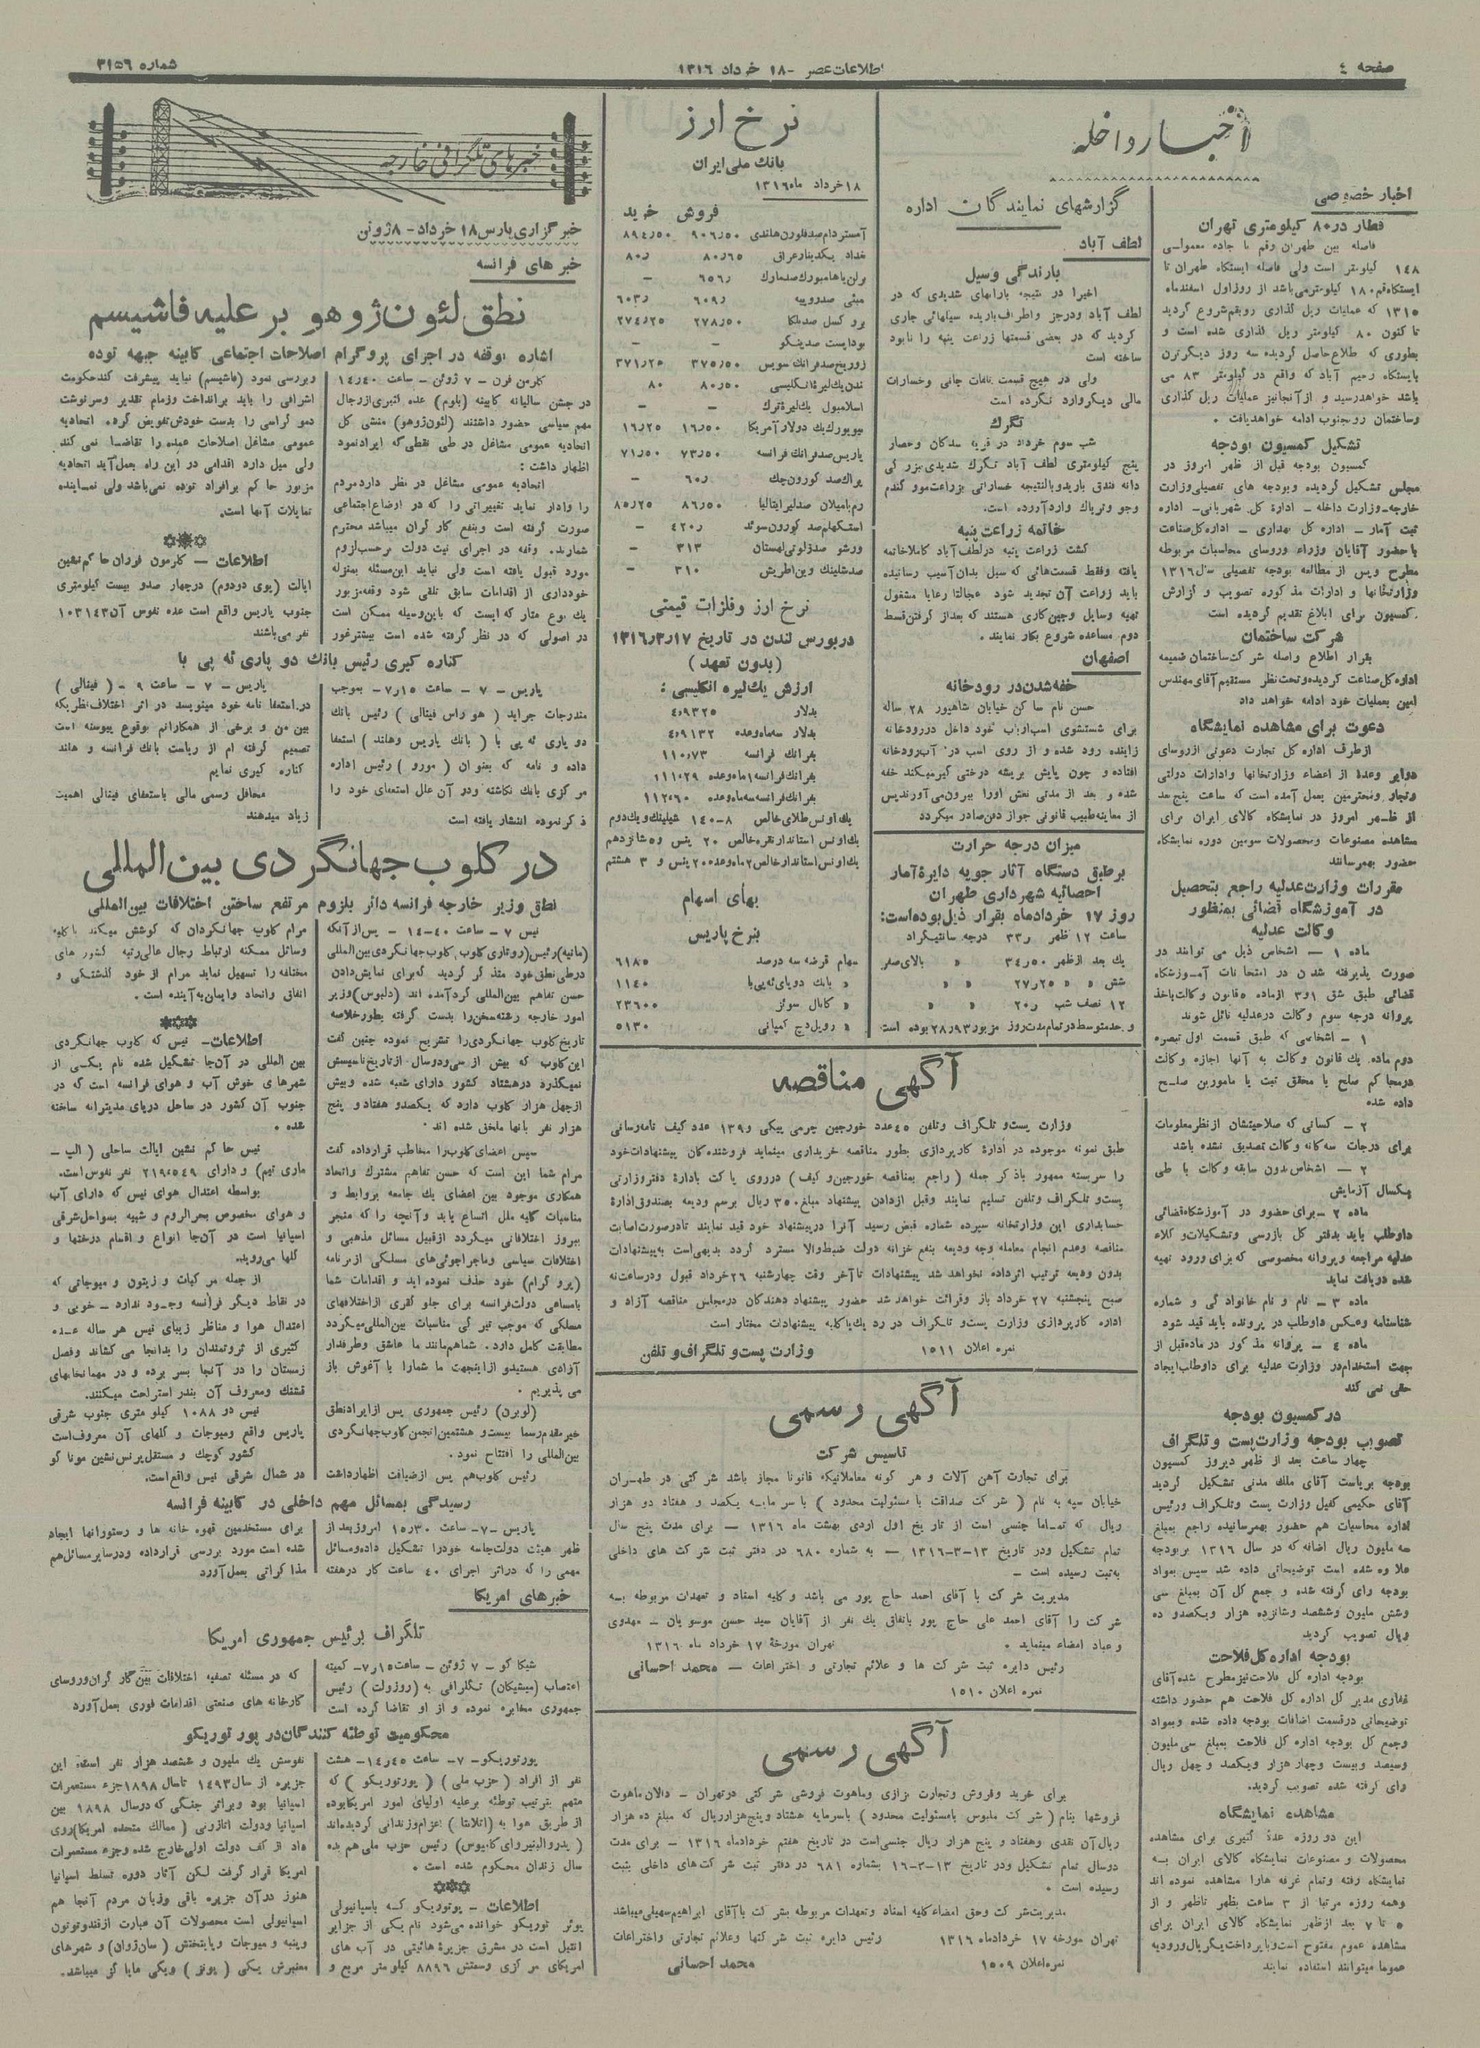 صفحه ٤
اطلاعات عصر - ١٨ خرداد ١٣١٦
شماره ٣١٥٦
اخبار داخله
اخبار خصوصی
قطار در ٨٠ کیلومتری تهران
فاصله بین طهران وقم با جاده معمولی
١٤٨ کیلومتر است ولی فاصله ایستگاه طهران تا
ایستگاه قم ١٨٠ کیلومتر می باشد از روز اول اسفند ماه
١٣١٥ که عملیات ریل گذاری رو بقم شروع گردید
تا کنون ٨٠ کیلومتر ریل گذاری شده است و
بطوری که اطلاع حاصل گردیده سه روز دیگر ترن
بایستگاه رحیم آباد که واقع در کیلومتر ٨٣ می
باشد خواهد رسید و از آنجا نیز عملیات ریل گذاری
وساختمان رو بجنوب ادامه خواهد یافت .
تشکیل کمسیون بودجه
کمسیون بودجه قبل از ظهر امروز در
مجلس تشکیل گردیده و بودجه های تفصیلی وزارت
خارجه - وزارت داخله - اداره کل شهربانی - اداره
ثبت آمار - اداره کل بهداری - اداره کل صناعت
با حضور آقایان وزراء ورؤسای محاسبات مربوطه
مطرح وپس از مطالعه بودجه تفصیلی سال ١٣١٦
وزارتخانها و ادارات مذکوره تصویب و گزارش
کمسیون برای ابلاغ تقدیم گردیده است
شرکت ساختمان
بقرار اطلاع واصله شرکت ساختمان ضمیمه
اداره کل صناعت گردیده وتحت نظر مستقیم آقای مهندس
امین بعملیات خود ادامه خواهد داد
دعوت برای مشاهده نمایشگاه
از طرف اداره کل تجارت دعوتی از رؤسای
دوایر وعدۀ از اعضاء وزارتخانها وادارات دولتی
وتجار ومحترمین بعمل آمده است که ساعت پنج بعد
از ظهر امروز در نمایشگاه کالای ایران برای
مشاهده مصنوعات ومحصولات سومین دوره نمایشگاه
حضور بهمرسانند
مقررات وزارت عدلیه راجع بتحصیل
در آموزشگاه قضائی بمنظور
وکالت عدلیه
ماده ١ - اشخاص ذیل می توانند در
صورت پذیرفته شدن در امتحانات آموزشگاه
قضائی طبق شق ١و٣ از ماده ٥ قانون وکالت باخذ
پروانه درجه سوم وکالت در عدلیه نائل شوند
١ - اشخاصی که طبق قسمت اول تبصره
دوم ماده یك قانون وکالت به آنها اجازه وکالت
در محاکم صلح یا محقق ثبت یا مامورین صلح
داده شده
٢ - کسانی که صلاحیتشان از نظر معلومات
برای درجات سه گانه وکالت تصدیق نشده باشد
٣ - اشخاص بدون سابقه وکالت با طی
یکسال آزمایش
ماده ٢ - برای حضور در آموزشگاه قضائی
داوطلب باید بدفتر کل بازرسی وتشکیلات وکلاء
عدلیه مراجعه وپروانه مخصوصی که برای ورود تهیه
شده دریافت نماید
ماده ٣ - نام و نام خانوادگی و شماره
شناسنامه وعکس داوطلب در پرونده باید قید شود
ماده ٤ - پروانه مذکور در ماده قبل از
جهت استخدام در وزارت عدلیه برای داوطلب ایجاد
حقی نمی کند
در کمسیون بودجه
تصویب بودجه وزارت پست و تلگراف
چهار ساعت بعد از ظهر دیروز کمسیون
بودجه بریاست آقای ملك مدنی تشکیل گردید
آقای حکیمی کفیل وزارت پست وتلگراف ورئیس
اداره محاسبات هم حضور بهمرسانیده راجع بمبلغ
سه ملیون ریال اضافه که در سال ١٣١٦ بر بودجه
علاوه شده است توضیحاتی داده شد سپس بمواد
بودجه رای گرفته شده و جمع کل آن بمبلغ سی
وشش ملیون وششصد وشانزده هزار ویکصد و ده
ریال تصویب گردید
بودجه اداره کل فلاحت
بودجه اداره کل فلاحت نیز مطرح شده آقای
غفاری مدیر کل اداره کل فلاحت هم حضور داشته
توضیحاتی در قسمت اضافات بودجه داده شده وبمواد
وجمع کل بودجه اداره کل فلاحت بمبلغ سی ملیون
وسیصد وبیست وچهار هزار ویکصد و چهل ریال
رای گرفته شده تصویب گردید.
مشاهده نمایشگاه
این دو روزه عدۀ کثیری برای مشاهده
محصولات و مصنوعات نمایشگاه کالای ایران به
نمایشگاه رفته وتمام غرفه هارا مشاهده نموده اند
وهمه روزه مرتبا از ٣ ساعت بظهر تا ظهر و از
٥ تا ٧ بعد از ظهر نمایشگاه کالای ایران برای
مشاهده عموم مفتوح است وبا پرداخت یکریال ورودیه
عموما میتوانند استفاده نمایند
گزارشهای نمایندگان اداره
لطف آباد
بارندگی وسیل
اخیرا در نتیجه بارانهای شدیدی که در
لطف آباد ودرجز واطراف باریده سیلهائی جاری
گردید که در بعضی قسمتها زراعت پنبه را نابود
ساخته است
ولی در هیچ قسمت تلفات جانی وخسارات
مالی دیگر وارد نکرده است
تگرگ
شب سوم خرداد در قریه سدکان وحصار
پنج کیلومتری لطف آباد تگرك شدیدی بزرگی
دانه فندق باریده وبالنتیجه خساراتی بزراعت مو و گندم
وجو وتریاك وارد آورده است.
خاتمه زراعت پنبه
کشت زراعت پنبه در لطف آباد کاملا خاتمه
یافته وفقط قسمت هائی که سیل بدان آسیب رسانیده
باید زراعت آن تجدید شود عجالتا رعایا مشغول
تهیه وسایل وجین کاری هستند که بعد از گرفتن قسط
دوم مساعده شروع بکار نمایند .
اصفهان
خفه شدن در رودخانه
حسن نام ساکن خیابان شاهپور ٢٨ ساله
برای شستشوی اسب ارباب خود داخل در رودخانه
زاینده رود شده و از روی اسب در آب رودخانه
افتاده و چون پایش بریشه درختی گیر میکند خفه
شده و بعد از مدتی نعش اورا بیرون می آورند پس
از معاینه طبیب قانونی جواز دفن صادر میگردد
میزان درجه حرارت
بر طبق دستگاه آثار جویه دایرۀ آمار
احصائیه شهرداری طهران
روز ١٧ خرداد ماه بقرار ذیل بوده است:
ساعت ١٢ ظهر ٣٣ر درجه سانتیگراد
یك بعد از ظهر ٣٤ر٥٠ « بالای صفر
شش « « ٢٧ر٢٥ « «
١٢ نصف شب ٢٠ر « «
و حد متوسط در تمام مدت روز مزبور ٢٨ر٩٣ بوده است
نرخ ارز
بانك ملی ایران
١٨ خرداد ماه ١٣١٦
فروش خرید
آمستردام صد فلورن هلندی ٩٠٦ر٥٠ ٨٩٤ر٥٠
بغداد یکدینار عراق ٨٠ر٦٥ ٨٠ر
برلن یا هامبورك صد مارك ٦٥٦ر –
بمبئی صد روپیه ٦٠٩ر ٦٠٣ر
بروکسل صد بلکا ٢٧٨ر٥٠ ٢٧٤ر٢٥
بوداپست صد پنگو – –
زوریخ صد فرانك سویس ٣٧٥ر٥٠ ٣٧١ر٢٥
لندن یك لیرۀ انگلیسی ٨٠ر٥٠ ٨٠
اسلامبول یك لیرۀ ترك – –
نیویورك یك دولار آمریکا ١٦ر٥٠ ١٦ر٢٥
پاریس صد فرانك فرانسه ٧٣ر٥٠ ٧١ر٥٠
پراك صد کورون چك ٦٠ر –
رم یا میلان صد لیر ایتالیا ٨٦ر٥٠ ٨٥ر٢٥
استکهلم صد کورون سوئد ٤٢٠ر –
ورشو صد زلوتی لهستان ٣١٣ –
صد شلینك وین اطریش ٣١٠ –
نرخ ارز وفلزات قیمتی
در بورس لندن در تاریخ ١٣١٦ر٣ر١٧
(بدون تعهد)
ارزش یك لیره انگلیسی :
بدلار ٤ر٩٣٢٥
بدلار سه ماه وعده ٤ر٩١٣٢
بفرانك فرانسه ١١٠ر٧٣
بفرانك فرانسه ١ ماه وعده ١١١ر٢٩
بفرانك فرانسه سه ماه وعده ١١٢ر٦٠
یك اونس طلای خالص ٨-١٤٠ شیلینك و یك دوم
یك اونس استاندارد نقره خالص ٢٠ پنس و ٥ شانزدهم
یك اونس استاندارد خالص ٢ ماه وعده ٢٠ پنس و ٣ هشتم
بهای اسهام
بنرخ پاریس
سهام قرضه سه درصد ٦١٨٥
« بانك دوپاری ئه پی با ١١٤٠
« کانال سوئز ٢٣٦٠٠
« رویل دچ کمپانی ٥١٣٠
آگهی مناقصه
وزارت پست و تلگراف وتلفن ٤٥ عدد خورجین چرمی پیکی و ١٣٩ عدد کیف نامه رسانی
طبق نمونه موجوده در ادارۀ کارپردازی بطور مناقصه خریداری مینماید فروشندگان پیشنهادات خود
را سربسته ممهور باذکر جمله (راجع بمناقصه خورجین و کیف) در روی پاکت بادارۀ دفتر وزارتی
پست و تلگراف وتلفن تسلیم نمایند وقبل از دادن پیشنهاد مبلغ ٣٥٠ ریال برسم ودیعه بصندوق ادارۀ
حسابداری این وزارتخانه سپرده شماره قبض رسید آنرا در پیشنهاد خود قید نمایند تا در صورت اصابت
مناقصه وعدم انجام معامله وجه ودیعه بنفع خزانه دولت ضبط والا مسترد گردد بدیهی است به پیشنهادات
بدون ودیعه ترتیب اثر داده نخواهد شد پیشنهادات تا آخر وقت چهارشنبه ٢٦ خرداد قبول و در ساعت نه
صبح پنجشنبه ٢٧ خرداد باز وقرائت خواهد شد حضور پیشنهاد دهندگان در مجلس مناقصه آزاد و
اداره کارپردازی وزارت پست و تلگراف در رد یك یا کلیه پیشنهادات مختار است
نمره اعلان ١٥١١ وزارت پست و تلگراف و تلفن
آگهی رسمی
تاسیس شرکت
برای تجارت آهن آلات و هر گونه معاملاتیکه قانونا مجاز باشد شرکتی در طهران
خیابان سپه به نام ( شرکت صداقت با مسئولیت محدود ) با سرمایه یکصد و هفتاد دو هزار
ریال که تماما جنسی است از تاریخ اول اردی بهشت ماه ١٣١٦ - برای مدت پنج سال
تمام تشکیل ودر تاریخ ١٣-٣-١٣١٦ - به شماره ٦٨٠ در دفتر ثبت شرکت های داخلی
به ثبت رسیده است -
مدیریت شرکت با آقای احمد حاج پور می باشد و کلیه اسناد و تعهدات مربوطه به
شرکت را آقای احمد علی حاج پور باتفاق یك نفر از آقایان سید حسن موسویان - مهدوی
و عباد امضاء مینماید . تهران مورخۀ ١٧ خرداد ماه ١٣١٦
رئیس دایره ثبت شرکت ها و علائم تجارتی و اختراعات - محمد احسانی
نمره اعلان ١٥١٠
آگهی رسمی
برای خرید وفروش وتجارت بزازی وماهوت فروشی شرکتی در تهران - دالان ماهوت
فروشها بنام ( شرکت ملبوس با مسئولیت محدود ) با سرمایه هشتاد وپنج هزار ریال که مبلغ ده هزار
ریال آن نقدی وهفتاد و پنج هزار ریال جنسی است در تاریخ هفتم خرداد ماه ١٣١٦ - برای مدت
دو سال تمام تشکیل ودر تاریخ ١٣-٣-١٦ بشماره ٦٨١ در دفتر ثبت شرکت های داخلی بثبت
رسیده است .
مدیریت شرکت وحق امضاء کلیه اسناد وتعهدات مربوطه بشرکت با آقای ابراهیم سهیلی میباشد
تهران مورخه ١٧ خرداد ماه ١٣١٦ رئیس دایره ثبت شرکتها وعلائم تجارتی واختراعات
نمره اعلان ١٥٠٩ محمد احسانی
خبرهای تلگرافی خارجه
خبرگزاری پارس ١٨ خرداد - ٨ ژوئن
خبر های فرانسه
نطق لئون ژوهو بر علیه فاشیسم
اشاره بوقفه در اجرای پروگرام اصلاحات اجتماعی کابینه جبهه توده
کلرمن فرن - ٧ ژوئن - ساعت ١٤ر٤٠
در جشن سالیانه کابینه (بلوم) عده کثیری از رجال
مهم سیاسی حضور داشتند (لئون ژوهو) منشی کل
اتحادیه عمومی مشاغل در طی نطقی که ایراد نمود
اظهار داشت :
اتحادیه عمومی مشاغل در نظر دارد مردم
را وادار نماید تغییراتی را که در اوضاع اجتماعی
صورت گرفته است وبنفع کارگران میباشد محترم
شمارند. وقفه در اجرای نیت دولت بر حسب لزوم
مورد قبول یافته است ولی نباید این مسئله بمنزله
خودداری از اقدامات سابق تلقی شود وقفه مزبور
یك نوع متارکه ایست که باین وسیله ممکن است
در اصولی که در نظر گرفته شده است بیشتر غور
وبررسی نمود (فاشیسم) نباید پیشرفت کند حکومت
اشرافی را باید برانداخت وزمام تقدیر وسرنوشت
دموکراسی را بدست خودش تفویض کرد. اتحادیه
عمومی مشاغل اصلاحات عمده را تقاضا نمی کند
ولی میل دارد اقدامی در این راه بعمل آید اتحادیه
مزبور حاکم بر افراد توده نمی باشد ولی نماینده
تمایلات آنها است.
اطلاعات - کلرمون فرران حاکم نشین
ایالت (پوی دودوم) در چهار صد و بیست کیلومتری
جنوب پاریس واقع است عده نفوس آن ١٠٣١٤٣
نفر می باشند
کناره گیری رئیس بانك دو پاری ئه پی با
پاریس - ٧ - ساعت ٧ر١٥- بموجب
مندرجات جراید ( هوراس فینالی ) رئیس بانك
دوپاری ئه پی با ( بانك پاریس وهلند ) استعفا
داده و نامه که بعنوان ( مورو ) رئیس اداره
مرکزی بانك نگاشته ودر آن علل استعفای خود را
ذکر نموده انتشار یافته است
پاریس - ٧ - ساعت ٩ - ( فینالی )
در استعفا نامه خود مینویسد در اثر اختلاف نظریکه
بین من و برخی از همکارانم بوقوع پیوسته است
تصمیم گرفته ام از ریاست بانك فرانسه و هلند
کناره گیری نمایم
محافل رسمی مالی باستعفای فینالی اهمیت
زیاد میدهند
در کلوب جهانگردی بین المللی
نطق وزیر خارجه فرانسه دائر بلزوم مرتفع ساختن اختلافات بین المللی
نیس ٧ - ساعت ٤٠-١٤ - پس از آنکه
(مانیه) رئیس (روتاری کلوب) کلوب جهانگردی بین المللی
در طی نطق خود متذکر گردید که برای نمایش دادن
حسن تفاهم بین المللی گرد آمده اند (دلبوس) وزیر
امور خارجه رشته سخن را بدست گرفته بطور خلاصه
تاریخ کلوب جهانگردی را تشریح نموده چنین گفت
این کلوب که بیش از سی و دو سال از تاریخ تاسیسش
نمیگذرد در هشتاد کشور دارای شعبه شده وبیش
از چهل هزار کلوب دارد که یکصد و هفتاد و پنج
هزار نفر بانها ملحق شده اند .
سپس اعضای کلوب را مخاطب قرار داده گفت
مرام شما این است که حسن تفاهم مشترك واتحاد
همکاری موجود بین اعضای یك جامعه بروابط و
مناسبات کلیه ملل اتساع یابد وآنچه را که منجر
ببروز اختلافاتی میگردد از قبیل مسائل مذهبی و
اختلافات سیاسی وماجراجوئی های مسلکی از برنامه
(پروگرام) خود حذف نموده اید و اقدامات شما
بامساعی دولت فرانسه برای جلوگیری از اختلافهای
مسلکی که موجب تیرگی مناسبات بین المللی میگردد
مطابقت کامل دارد. شما هم مانند ما عاشق وطرفدار
آزادی هستید و از اینجهت ما شمارا با آغوش باز
می پذیریم .
(لوبرن) رئیس جمهوری پس از ایراد نطق
خیر مقدم رسما بیست و هشتمین انجمن کلوب جهانگردی
بین المللی را افتتاح نمود .
رئیس کلوب هم پس از ضیافت اظهار داشت
مرام کلوب جهانگردان که کوشش میکند با کلیه
وسائل ممکنه ارتباط رجال عالی رتبه کشور های
مختلفه را تسهیل نماید مرام از خود گذشتگی و
اتفاق واتحاد وایمان به آینده است .
اطلاعات - نیس که کلوب جهانگردی
بین المللی در آن جا تشکیل شده نام یکی از
شهرهای خوش آب و هوای فرانسه است که در
جنوب آن کشور در ساحل دریای مدیترانه ساخته
شده .
نیس حاکم نشین ایالت ساحلی (الپ -
ماری تیم) و دارای ٢١٩ر٥٤٩ نفر نفوس است.
بواسطه اعتدال هوای نیس که دارای آب
و هوای مخصوص بحر الروم و شبیه بسواحل شرقی
اسپانیا است در آن جا انواع و اقسام درختها و
گلها می روید.
از جمله مرکبات و زیتون و میوجاتی که
در نقاط دیگر فرانسه وجود ندارد - خوبی و
اعتدال هوا و مناظر زیبای نیس هر ساله عده
کثیری از ثروتمندان را بدانجا می کشاند وفصل
زمستان را در آنجا بسر برده و در مهمانخانهای
قشنك ومعروف آن بندر استراحت میکنند.
نیس در ١٠٨٨ کیلو متری جنوب شرقی
پاریس واقع ومیوجات و گلهای آن معروف است
کشور کوچك و مستقل پرنس نشین موناکو
در شمال شرقی نیس واقع است.
رسیدگی بمسائل مهم داخلی در کابینه فرانسه
پاریس -٧- ساعت ١٥ر٣٠ امروز بعد از
ظهر هیئت دولت جلسه خودرا تشکیل داده ومسائل
مهمی را که در اثر اجرای ٤٠ ساعت کار در هفته
برای مستخدمین قهوه خانه ها و رستورانها ایجاد
شده است مورد بررسی قرار داده و در سایر مسائل هم
مذاکراتی بعمل آورد
خبرهای امریکا
تلگراف برئیس جمهوری امریکا
شیکاگو - ٧ ژوئن - ساعت ٧ر١٥- کمیته
اعتصاب (میشیگان) تلگرافی به (روزولت) رئیس
جمهوری مخابره نموده و از او تقاضا کرده است
که در مسئله تصفیه اختلافات بین کارگران ورؤسای
کارخانه های صنعتی اقدامات فوری بعمل آورد
محکومیت توطئه کنندگان در پورتوریکو
پورتوریکو- ٧- ساعت ١٤ر٤٥- هشت
نفر از افراد ( حزب ملی ) (پورتوریکو) که
متهم بترتیب توطئه بر علیه اولیای امور امریکا بوده
از طریق هوا به (اتلانتا ) اعزام وزندانی گردیده اند
(پدروالبنیرای کامپوس) رئیس حزب ملی هم بده
سال زندان محکوم شده است .
اطلاعات - پوتوریکو که باسپانیولی
پوئر توریکو خوانده می شود نام یکی از جزایر
انتیل است در مشرق جزیرۀ هائیتی در آب های
امریکای مرکزی وسعتش ٨٨٩٦ کیلو متر مربع و
نفوسش یك ملیون و ششصد هزار نفر است، این
جزیره از سال ١٤٩٣ تا سال ١٨٩٨ جزء مستعمرات
اسپانیا بود وبراثر جنگی که در سال ١٨٩٨ بین
اسپانیا ودولت اتازونی ( ممالك متحده امریکا) روی
داد از کف دولت اولی خارج شده وجزء مستعمرات
امریکا قرار گرفت لکن آثار دوره تسلط اسپانیا
هنوز در آن جزیره باقی وزبان مردم آنجا هم
اسپانیولی است محصولات آن عبارت از قند وتوتون
وپنبه و میوجات وپایتختش ( سان ژوان) و شهرهای
معتبرش یکی ( پونز ) ویکی مایا گز میباشد.